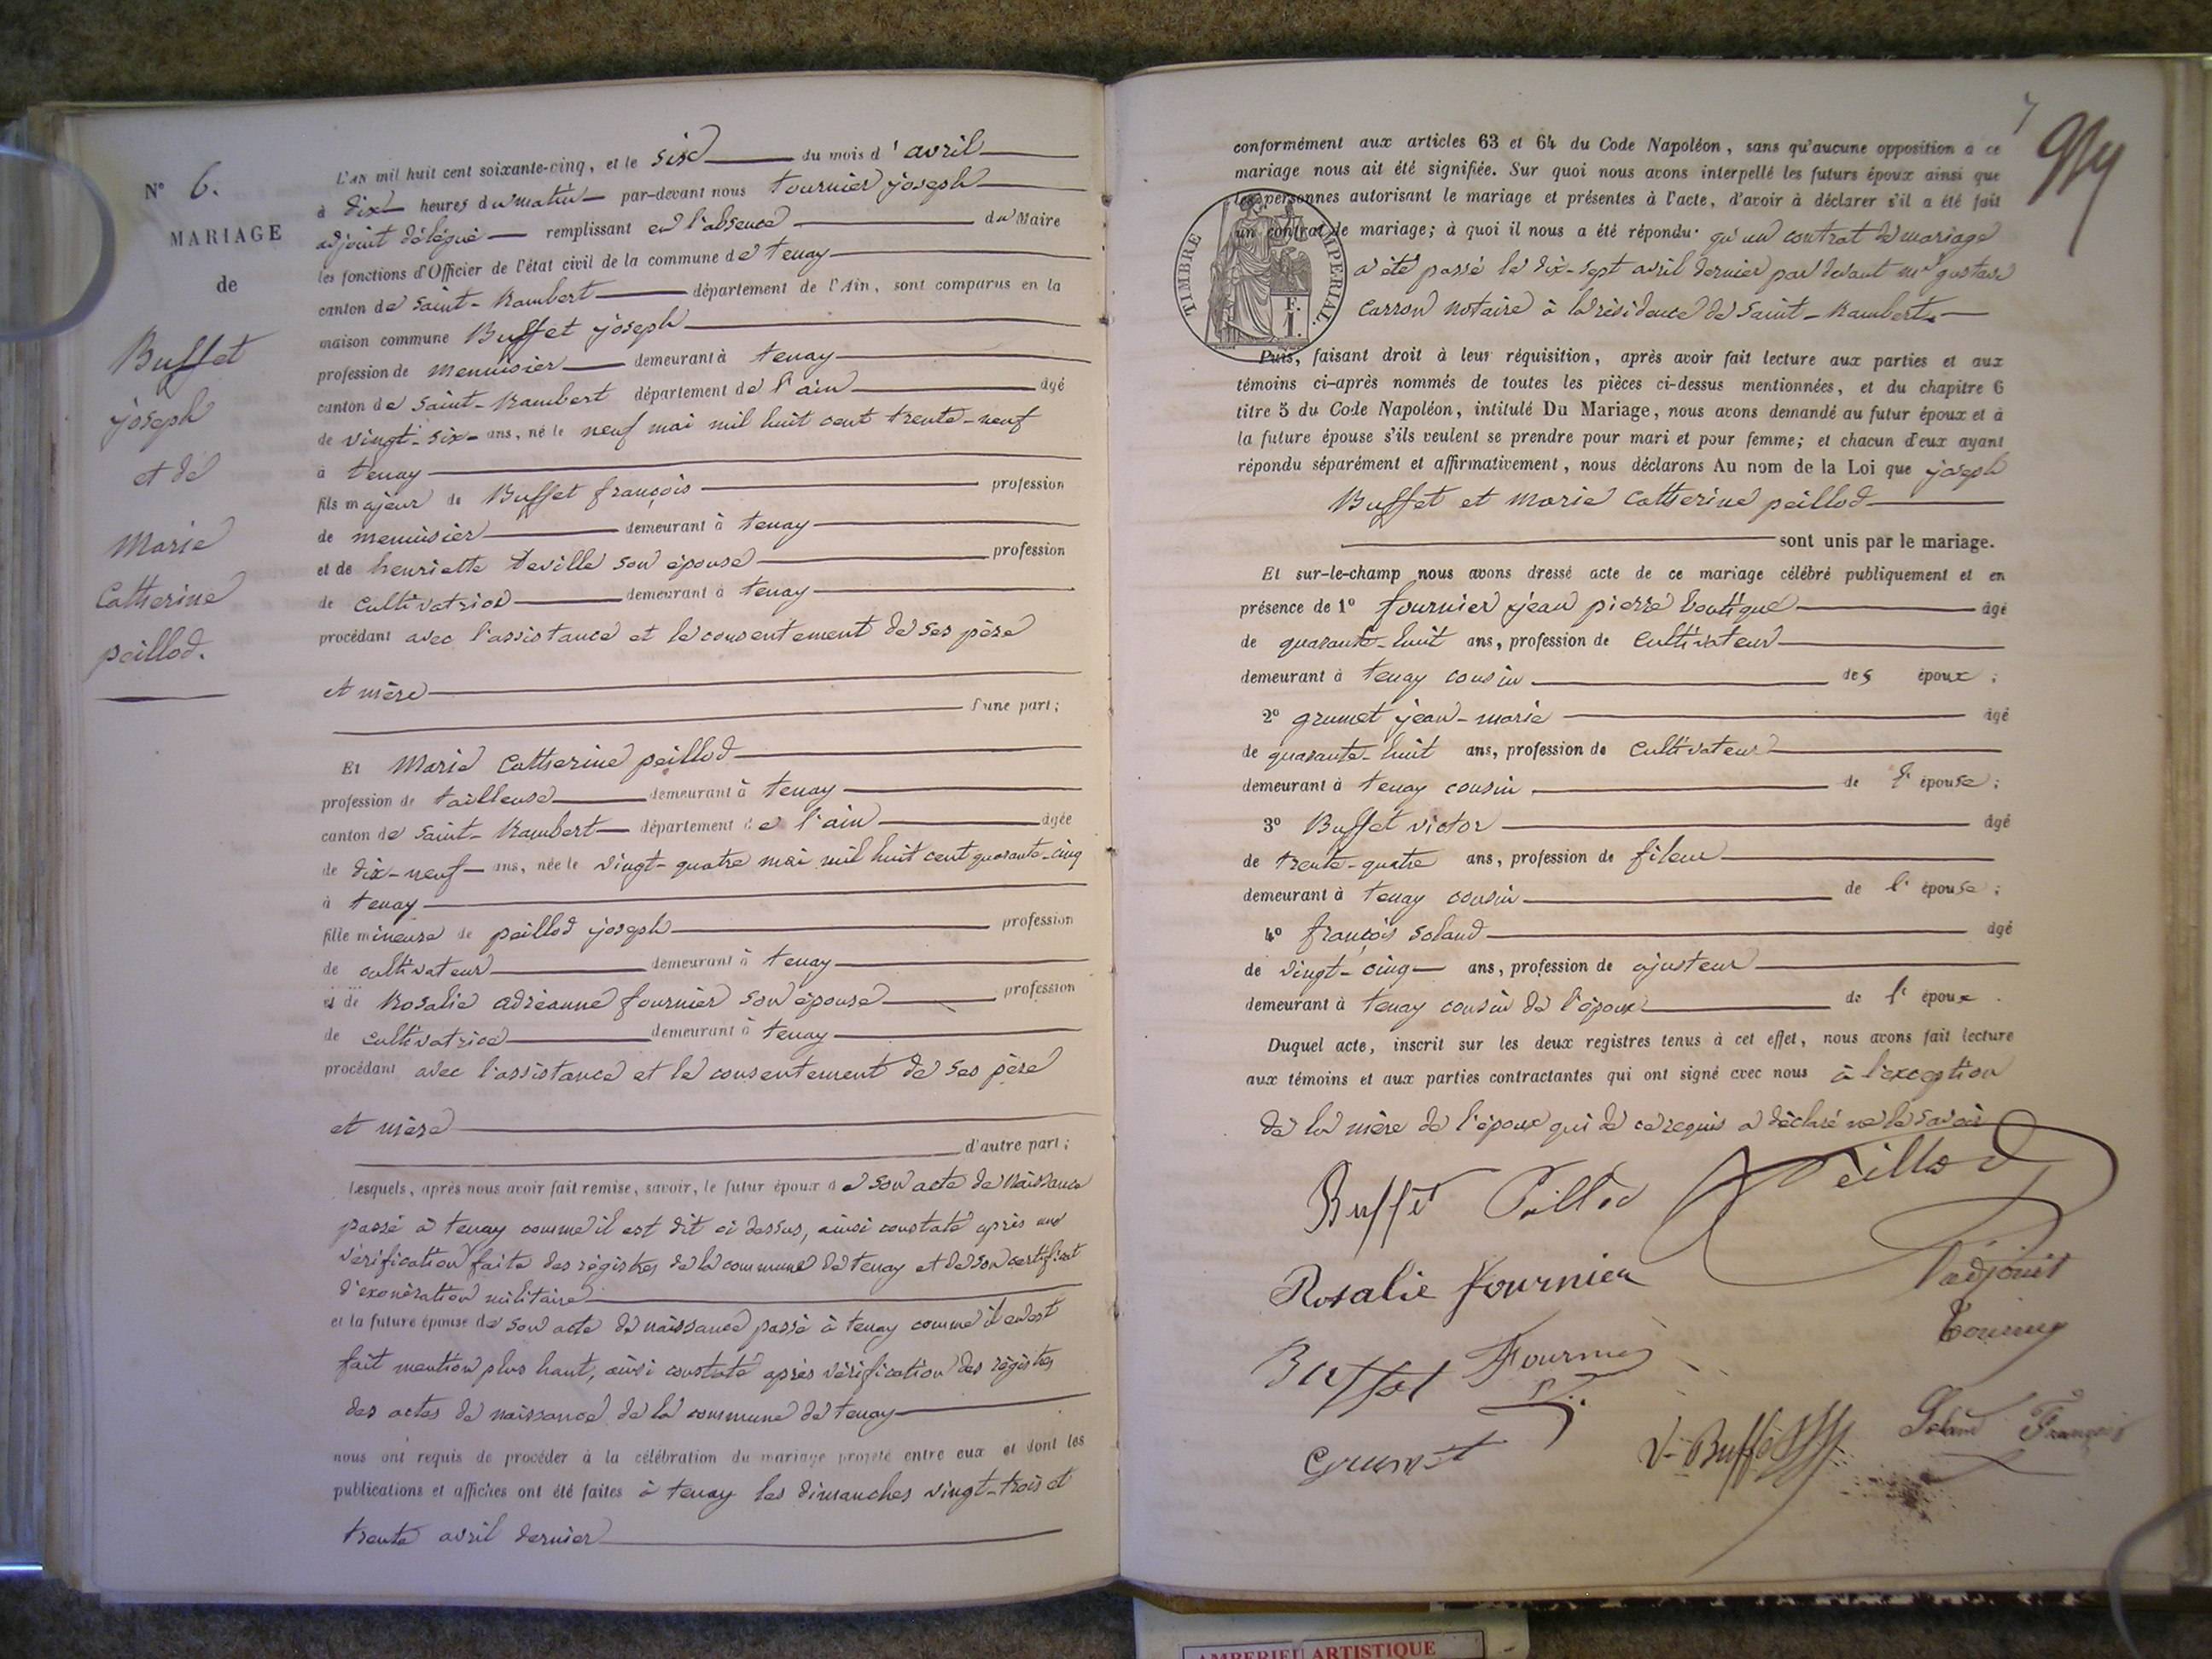 N° 6.
MARIAGE
de
Buffet
joseph
et de
Marie
Catherine
peillod.
L'AN mil huit cent soixante-cinq, et le six du mois d'avril
à dix heures du matin par-devant nous tournier joseph
adjoint délégué remplissant en l'absence du Maire
les fonctions d'Officier de l'état civil de la commune de tenay
canton de saint-Rambert département de l'Ain, sont comparus en la
maison commune Buffet joseph
profession de menuisier demeurant à tenay
canton de saint-Rambert département de l'ain âgé
de vingt-six ans, né le neuf mai mil huit cent trente-neuf
à tenay
fils majeur de Buffet françois profession
de menuisier demeurant à tenay
et de henriette teville son épouse profession
de cultivatrice demeurant à tenay
procédant avec l'assistance et le consentement de ses père
et mère
d'une part;
Et Marie Catherine peillod
profession de tailleuse demeurant à tenay
canton de saint-Rambert département de l'ain âgée
de dix-neuf ans, née le vingt-quatre mai mil huit cent quarante-cinq
à tenay
fille mineure de peillod joseph profession
de cultivateur demeurant à tenay
et de Rosalie adréanne fournier son épouse profession
de cultivatrice demeurant à tenay
procédant avec l'assistance et le consentement de ses père
et mère
d'autre part;
Lesquels, après nous avoir fait remise, savoir, le futur époux de son acte de naissance
passé à tenay comme il est dit ci dessus, ainsi constaté après une
vérification faite des régistres de la commune de tenay et de son certificat
d'exonération militaire
et la future épouse de son acte de naissance passé à tenay comme il en est
fait mention plus haut, ainsi constaté après vérification des régistres
des actes de naissance de la commune de tenay
nous ont requis de procéder à la célébration du mariage projeté entre eux et dont les
publications et affiches ont été faites à tenay les dimanches vingt-trois et
trente avril dernier
7
conformément aux articles 63 et 64 du Code Napoléon, sans qu'aucune opposition a ce
mariage nous ait été signifiée. Sur quoi nous avons interpellé les futurs époux ainsi que
les personnes autorisant le mariage et présentes à l'acte, d'avoir à déclarer s'il a été fait
un contrat de mariage; à quoi il nous a été répondu qu'un contrat de mariage
a été passé le dix-sept avril dernier par devant me gustave
carron notaire à la résidence de saint-Rambert.
TIMBRE IMPERIAL.
F.
1.
Puis, faisant droit à leur réquisition, après avoir fait lecture aux parties et aux
témoins ci-après nommés de toutes les pièces ci-dessus mentionnées, et du chapitre 6
titre 5 du Code Napoléon, intitulé Du Mariage, nous avons demandé au futur époux et à
la future épouse s'ils veulent se prendre pour mari et pour femme; et chacun d'eux ayant
répondu séparément et affirmativement, nous déclarons Au nom de la Loi que joseph
Buffet et Marie Catherine peillod
sont unis par le mariage.
Et sur-le-champ nous avons dressé acte de ce mariage célébré publiquement et en
présence de 1° fournier jean pierre boutique âgé
de quarante-huit ans, profession de cultivateur
demeurant à tenay cousin des époux;
2° grumet jean-marie âgé
de quarante-huit ans, profession de cultivateur
demeurant à tenay cousin de l'épouse;
3° Buffet victor âgé
de trente-quatre ans, profession de fileur
demeurant à tenay cousin de l'épouse;
4° françois soland âgé
de vingt-cinq ans, profession de ajusteur
demeurant à tenay cousin de l'époux de l'époux.
Duquel acte, inscrit sur les deux registres tenus à cet effet, nous avons fait lecture
aux témoins et aux parties contractantes qui ont signé avec nous à l'exception
de la mère de l'époux qui de ce requis a déclaré ne le savoir
Buffet Peillod Peillod
Rosalie fournier l'adjoint
Buffet Fournier Tournier
Grumet V. Buffet Soland François
AMBERIEU ARTISTIQUE